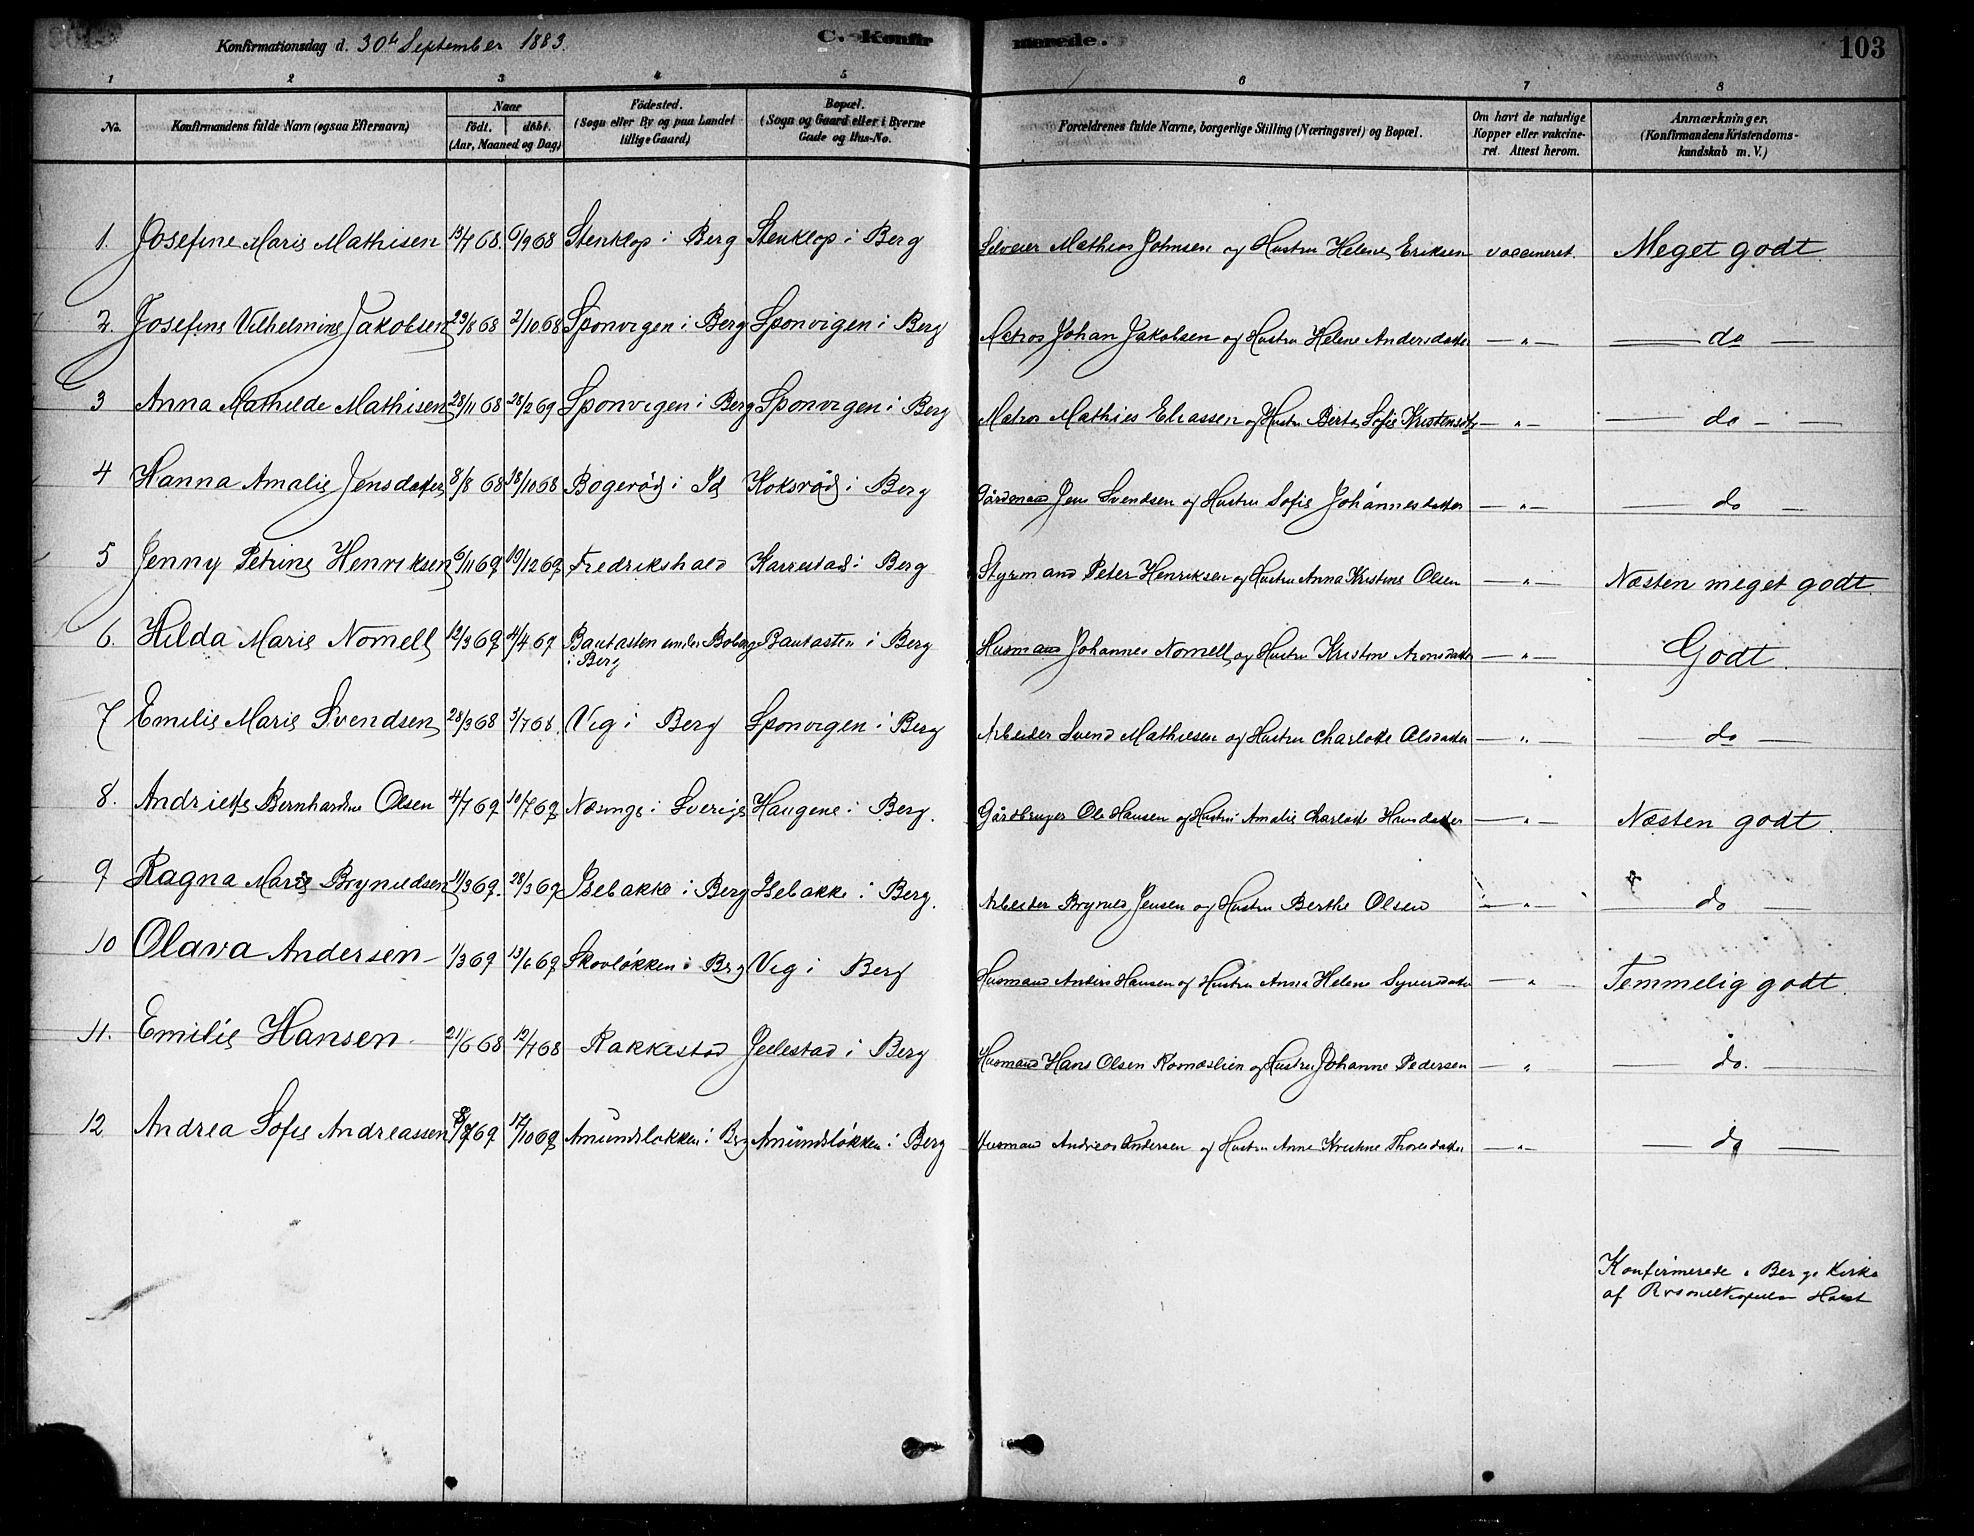 Konfirmationsdag d. 30te September 1883. C. Konfirmerede. 103
1 2 3 4 5 6 7 8
No. Konfirmandens fulde Navn (ogsaa Efternavn) Naar födt. döbt. (Aar, Maaned og Dag) Födested. (Sogn eller By og paa Landet tillige Gaard) Bopæl. (Sogn og Gaard eller i Byerne Gade og Hus-No. Forældrenes fulde Navne, borgerlige Stilling (Næringsvei) og Bopæl. Om havt de naturlige Kopper eller vakcineret. Attest herom. Anmærkninger. (Konfirmandens Kristendomskundskab m. V.)
1. Josefine Marie Mathisen 68. 6/9 68 Stenklop i Berg Stenklop i Berg Selveier Mathias Johnsen og Hustru Helene Eriksen vaccineret. Meget godt
2. Josefine Vilhelmine Jakobsen 29/8 68 2/10 68 Sponvigen i Berg Sponvigen i Berg Matros Johan Jakobsen og Hustru Helene Andersdatter — " — — do —
3 Anna Mathilde Mathisen 28/11 68 28/2 69 Sponvigen i Berg Sponvigen i Berg Matros Mathias Eliassen og Hustru Berta Sofie Kristensdtr — " — — do —
4 Hanna Amalie Jensdatter 8/8 68 18/10 68 Bogerød i Id Koksrød i Berg Gårdmand Jens Svendsen og Hustru Sofie Johannesdatter — " — — do —
5 Jenny Petrine Henriksen 6/11 69 19/12 69 Fredrikshald Karrestad i Berg Styrmand Peter Henriksen og Hustru Anna Kristine Olsen — " — Næsten meget godt.
6. Hilda Marie Nomell 12/3 69 4/4 69 Bautasten under Boberg i Berg Bautasten i Berg Husmand Johannes Nomell og Hustru Kristine Aronsdatter — " — Godt.
7 Emilie Marie Svendsen 28/3 68 5/7 68. Vig i Berg Sponvigen i Berg Arbeider Svend Mathiesen og Hustru Charlotte Olsdatter — " — — do —
8. Andriette Bernhardine Olsen 4/7 69 10/7 69 Næsinge i Sverige Haugene i Berg. Gårdbruger Ole Hansen og Hustru Amalie Charlotte Hansdatter — " — Næsten godt.
9 Ragna Marie Brynildsen 11/3 69. 28/3 69 Isebakke i Berg Isebakke i Berg. Arbeider Brynild Jensen og Hustru Berthe Olsen — " — — do —
10 Olava Andersen — 1/3 69 13/6 69 Skovløkken i Berg Vig i Berg Husmand Anders Hansen og Hustru Anna Helene Syversdatter — " — Temmelig godt.
11. Emilie Hansen 21/6 68 12/7 68 Rakkestad Jellestad i Berg Husmand Hans Olsen og Hustru Johanne Pedersen — " — — do. —
12 Andrea Sofie Andreassen 69 17/10 69 Amundsløkken i Berg Amundsløkken i Berg Husmand Andreas Andersen og Hustru Anne Kristine Thoresdatter — " — — do —
Konfirmerede i Berg Kirke
af Holst